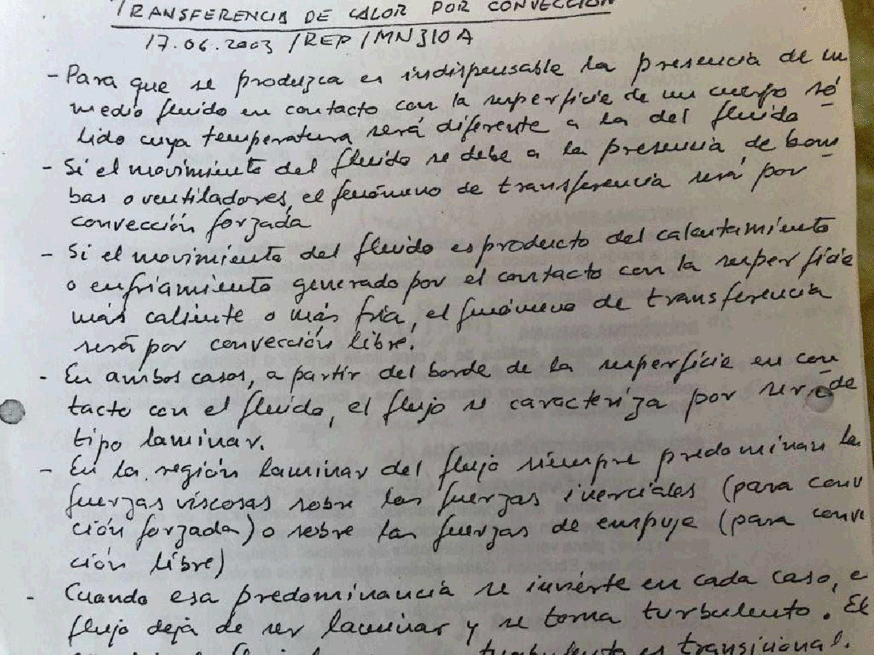 TRANSFERENCIA DE CALOR POR CONVECCIÓN
17.06.2003 / REP / MN310A
- Para que se produzca es indispensable la presencia de un
medio fluido en contacto con la superficie de un cuerpo só-
lido cuya temperatura será diferente a la del fluido
- Si el movimiento del fluido se debe a la presencia de bom-
bas o ventiladores, el fenómeno de transferencia será por
convección forzada
- Si el movimiento del fluido es producto del calentamiento
o enfriamiento generado por el contacto con la superficie
más caliente o más fría, el fenómeno de transferencia
será por convección libre.
- En ambos casos, a partir del borde de la superficie en con-
tacto con el fluido, el flujo se caracteriza por ser de
tipo laminar.
- En la región laminar del flujo siempre predominan la
fuerzas viscosas sobre las fuerzas inerciales (para conv
ción forzada) o sobre las fuerzas de empuje (para conve
ción libre)
- Cuando esa predominancia se invierte en cada caso, e
flujo deja de ser laminar y se torna turbulento. El
turbulento es transicional.